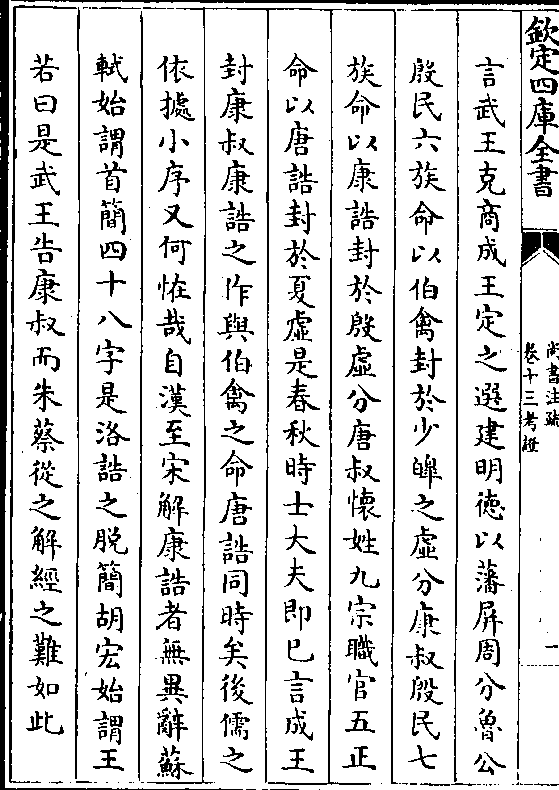 欽定四庫全書
尚書注疏
卷十三考證
一
言武王克商成王定之選建明德以藩屏周分魯公
殷民六族命以伯禽封於少皞之虛分康叔殷民七
族命以康誥封於殷虛分唐叔懷姓九宗職官五正
命以唐誥封於夏虛是春秋時士大夫即已言成王
封康叔康誥之作與伯禽之命唐誥同時矣後儒之
依據小序又何恠哉自漢至宋解康誥者無異辭蘇
軾始謂首簡四十八字是洛誥之脱簡胡宏始謂王
若曰是武王告康叔而朱蔡從之解經之難如此